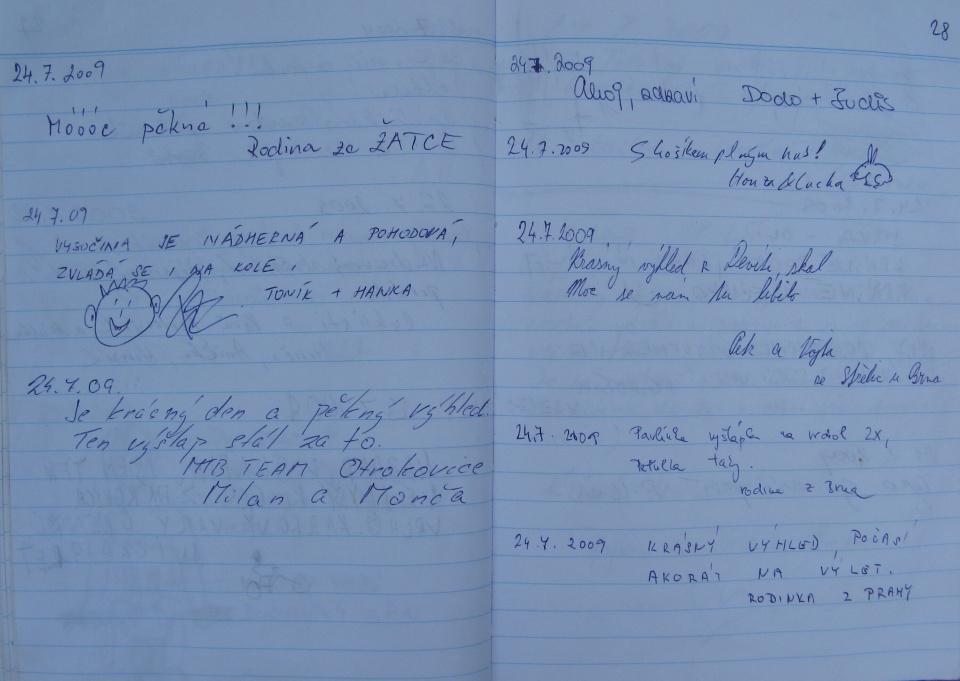 24.7.2009
Móóóc pěkná !!!
Rodina ze ŽATCE
24.7.09
VYSOČINA JE NÁDHERNÁ A POHODOVÁ,
ZVLÁDÁ SE I NA KOLE.
TONÍK + HANKA
24.7.09.
Je krásný den a pěkný výhled.
Ten výšlap stál za to.
MTB TEAM Otrokovice
Milan a Monča
28
24.7.2009
Ahoj, zdraví Dodo +
24.7.2009 S košíkem plným hub!
Honza & Lucka
24.7.2009
Krásný výhled z skal
Moc se nám tu líbilo
a Vojta
ze Střelic u Brna
24.7.2009 Pavlínka vyšlápla na vrchol 2x,
taky.
rodina z Brna
24.7.2009 KRÁSNÝ VÝHLED, POČASÍ
AKORÁT NA VÝLET.
RODINKA Z PRAHY